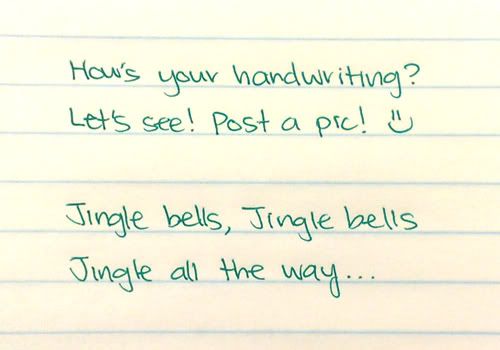 How's your handwriting?
Let's see! Post a pic! :)
Jingle bells, Jingle bells
Jingle all the way...